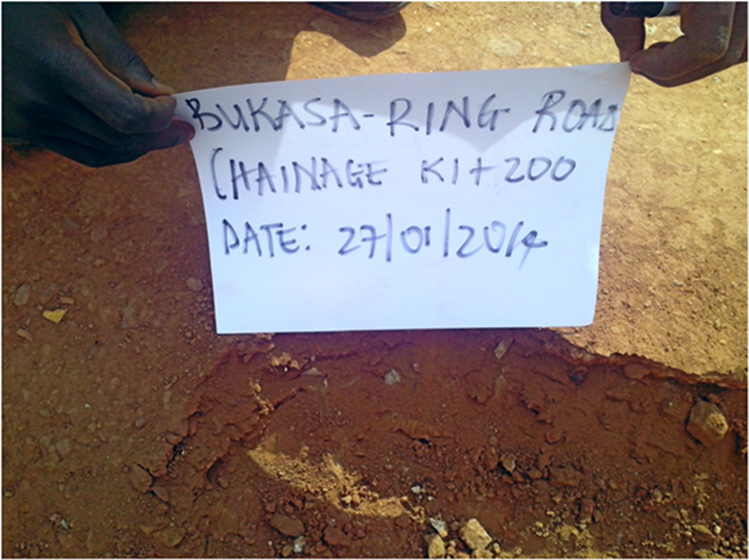 BUKASA-RING ROAD
CHAINAGE K1+200
DATE: 27/01/2014